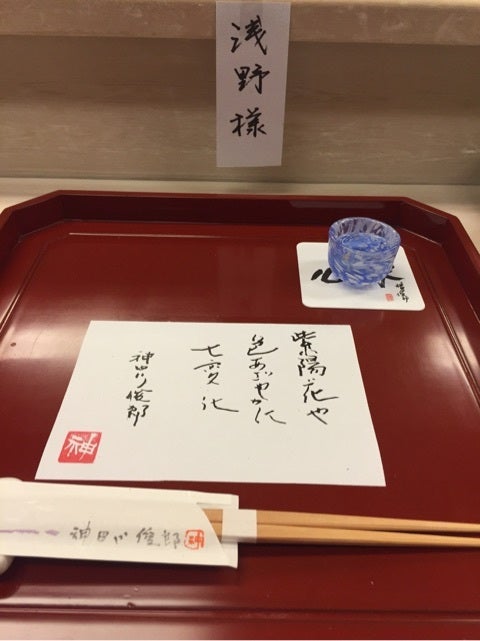 浅野様
紫陽花や
色あざやかに
七変化
神田川俊郎
神
神田川俊郎
神